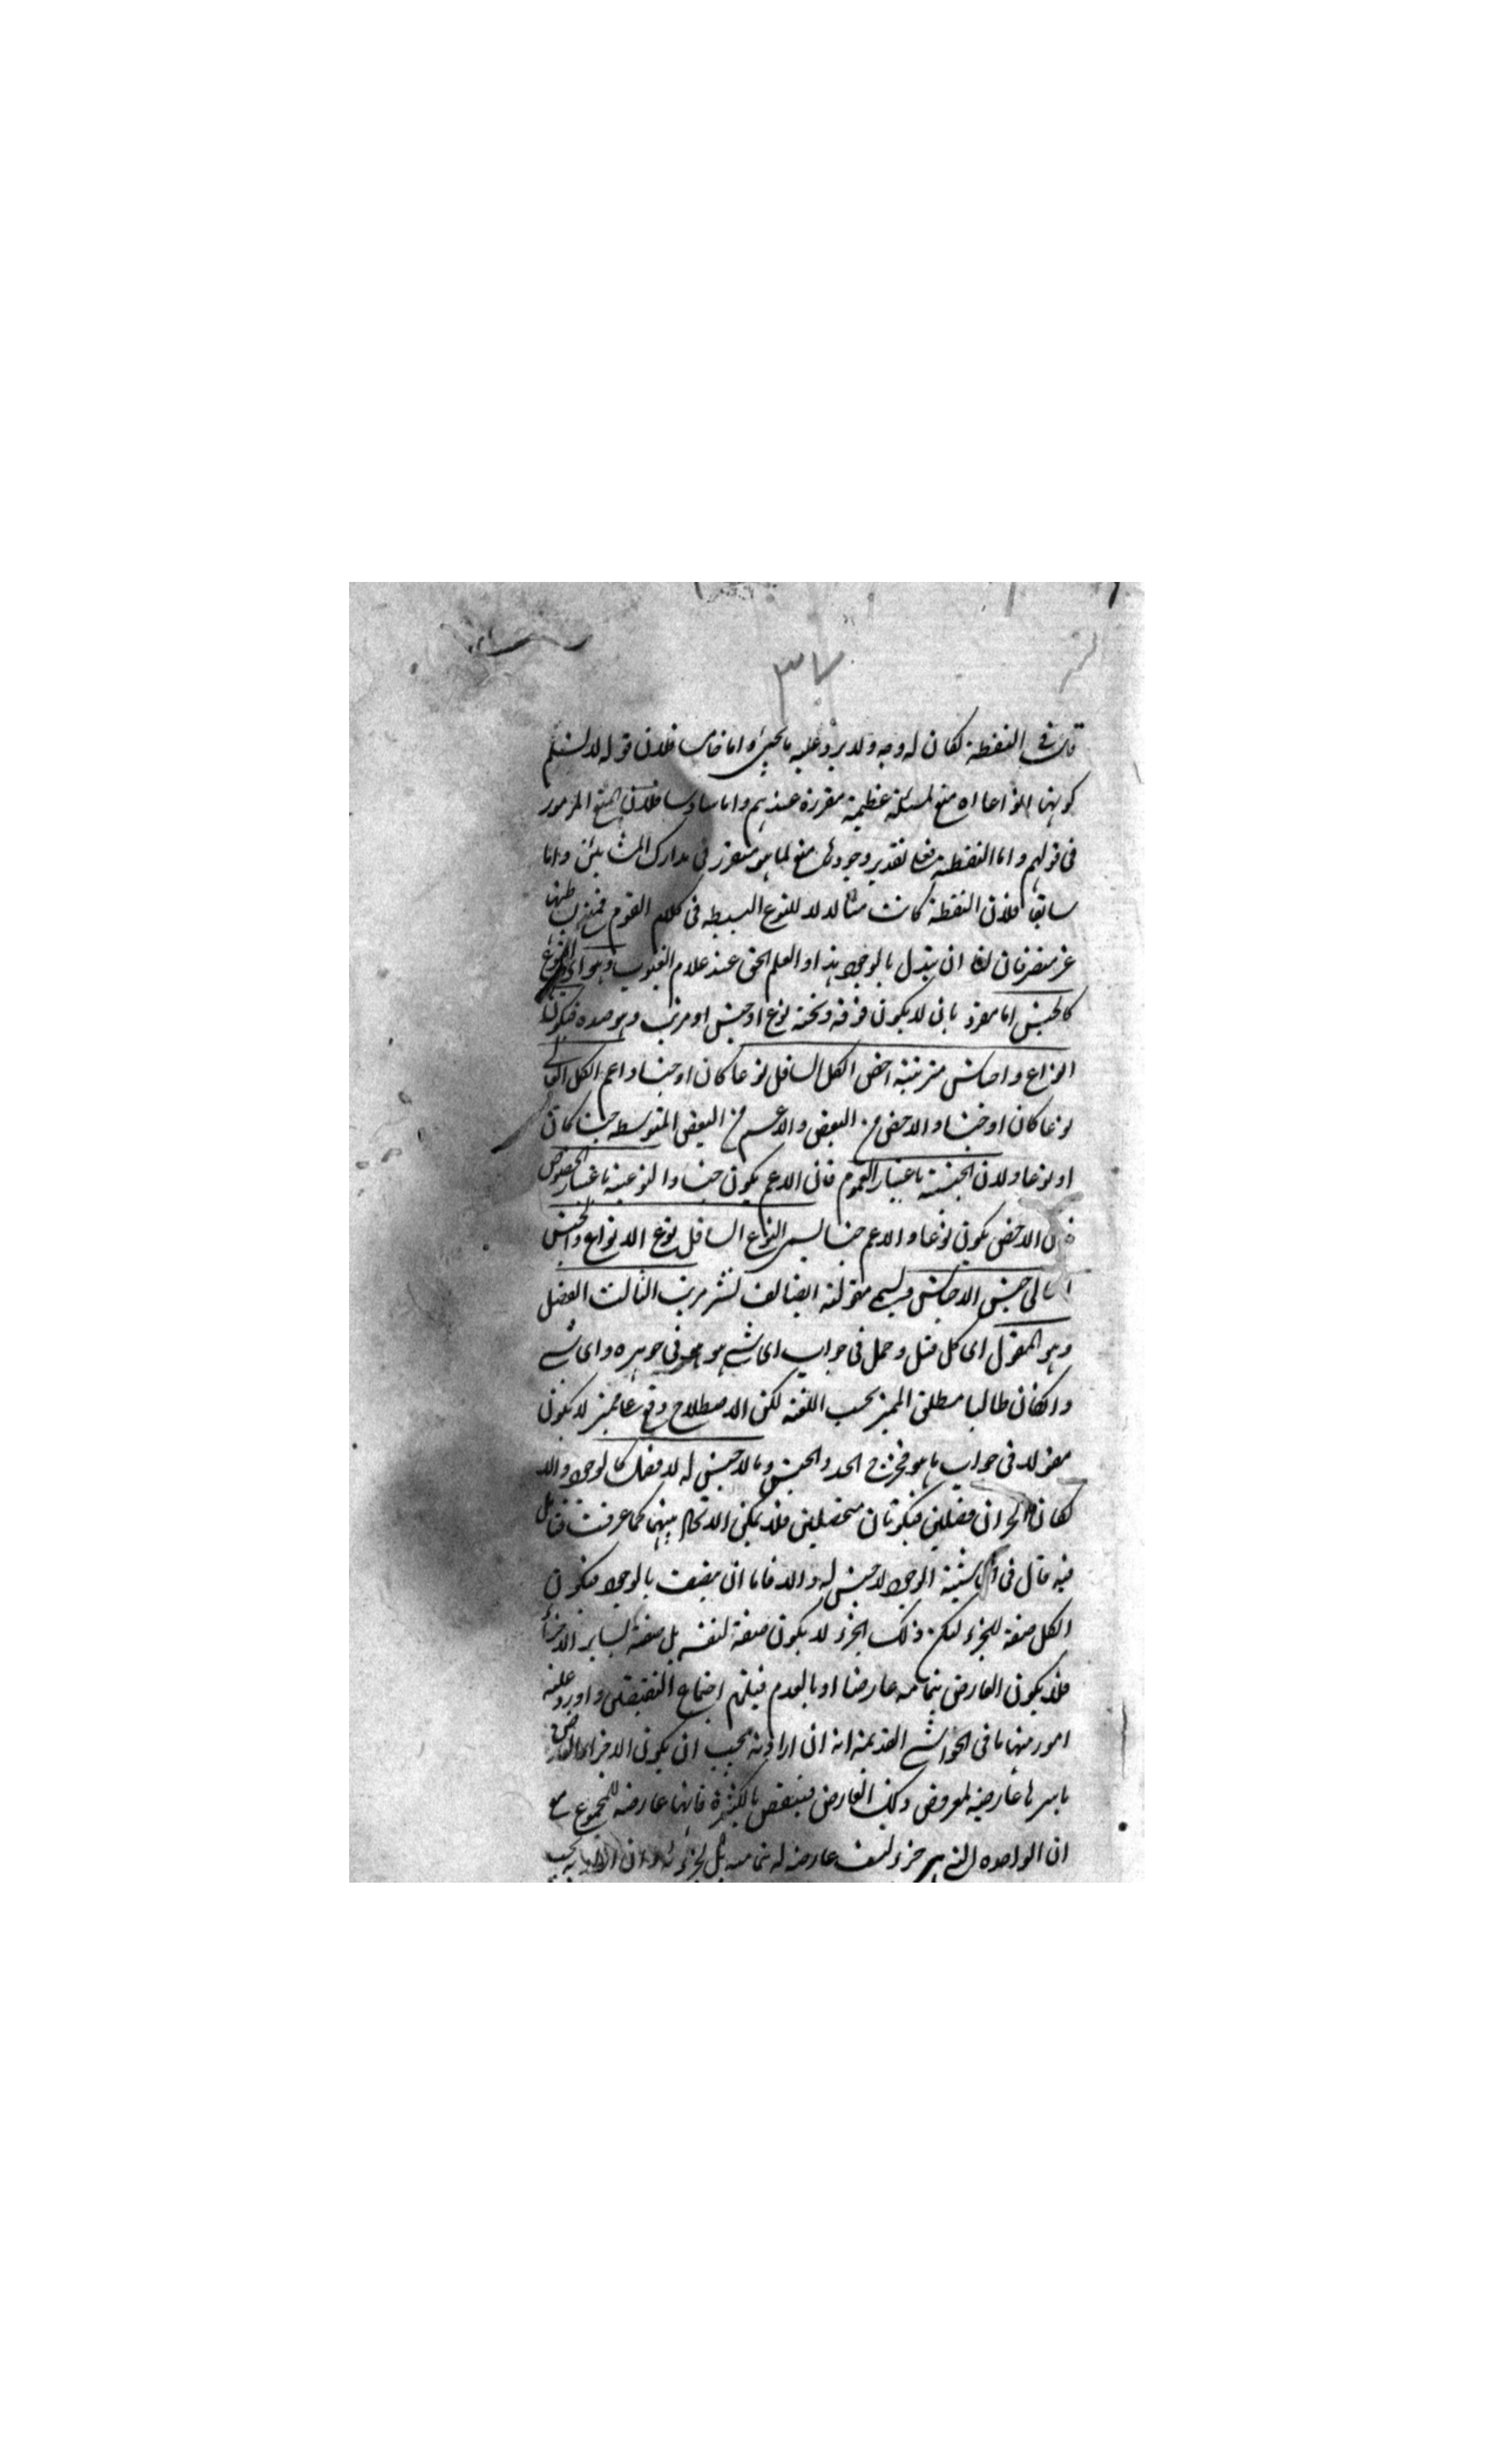 ٣٧
في النقطة لكان له وجه ولا يرد عليه ما يجئ واما خامسا فلان قوله لا نسلم
كونها انواعا اه منع لمسئلة عظيمة مقررة عندهم واما سادسا فلان المنع المزبور
في قولهم واما النقطة فعلى تقدير وجودها منع لما هو متقرر في مدارك المشائين واما
سابعا فلان النقطة كانت مثالا للنوع البسيط في كلام القوم
ان يبدل بالوجود هذا والعلم الحق عند علام الغيوب وهو اى النوع
كالجنس اما مفرد بان لا يكون فوقه وتحته نوع او جنس او مرتب وهو ضده فيكون
انواع واجناس مترتبة اخص الكل السافل نوعا كان او جنسا واعم الكل العالي
نوعا كان او جنسا والاخص من البعض والاعم من البعض المتوسط جنسا كان
او نوعا ولان الجنسية باعتبار العموم فان الاعم يكون جنسا والنوعية باعتبار الخصوص
فان الاخص يكون نوعا والاعم جنسا يسمى النوع السافل نوع الانواع والجنس
العالى جنس الاجناس ويسمى مقولة ايضا لف نشر مرتب الثالث الفصل
وهو المقول اى كل قيل وحمل في جواب اى شى هو هو في جوهره واى شى
وان كان طالبا مطلق المميز بحسب اللغة لكن الاصطلاح وقع على مميز لا يكون
مقولا في جواب ما هو فخرج الحد والجنس وما لا جنس له لا فصل له كالوجود والا
لكان الجزان فصلين فيكونان متحصلين فلا يمكن الاتحاد بينهما كما عرفت فتامل
فيه قال في الحاشية الوجود لا جنس له والا فاما ان يتصف بالوجود فيكون
الكل صفة للجزء لكن ذلك الجزء لا يكون صفة لنفسه بل صفة لساير الاجزاء
فلا يكون العارض بتمامه عارضا او بالعدم فيلزم اجتماع النقيضين واورد عليه
امور منها ما في الحواشى القديمة انه ان اراد انه يجب ان يكون الاجزاء العارض
باسرها عارضة لمعروض ذلك العارض فينتقض بالكثرة فانها عارضة للمجموع مع
ان الواحدة التي هي جزء ليست عارضة له بتمامه بل لجزئه وان اراد انه يجب